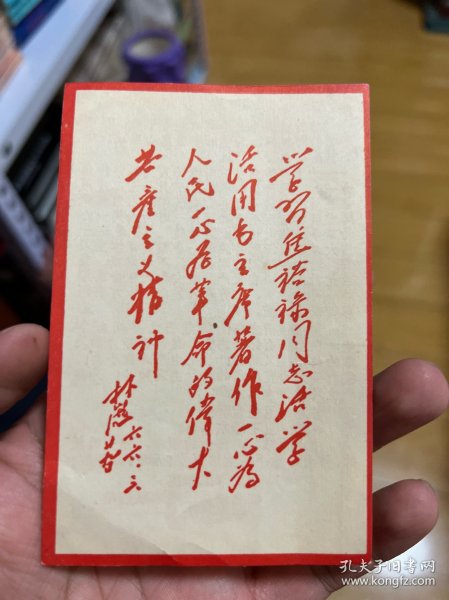 学习焦裕禄同志活学
活用毛主席著作一心为
人民一心为革命的伟大
共产主义精神
六六.六
孔夫子旧书网
www.kongfz.com